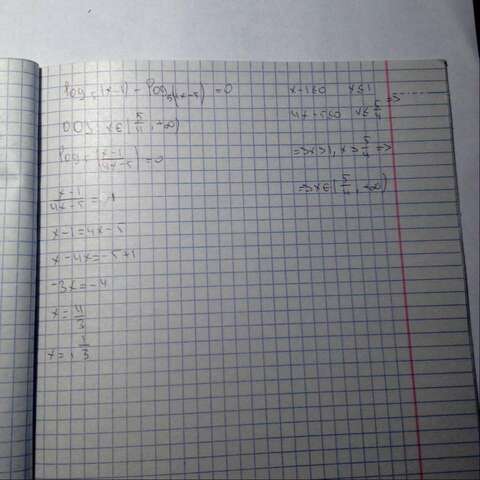 log₅(x-1) - log₅(4x-5) = 0
ООЗ x∈(5/4, +∞)
log₅((x-1)/(4x-5)) = 0
(x-1)/(4x-5) = 1
x-1=4x-5
x-4x=-5+1
-3x=-4
x=4/3
x=1 1/3
x-1≤0 x≤1
4x-5≤0 x≤5/4 =>
=>x>1, x>5/4 =>
=>x∈(5/4, +∞)